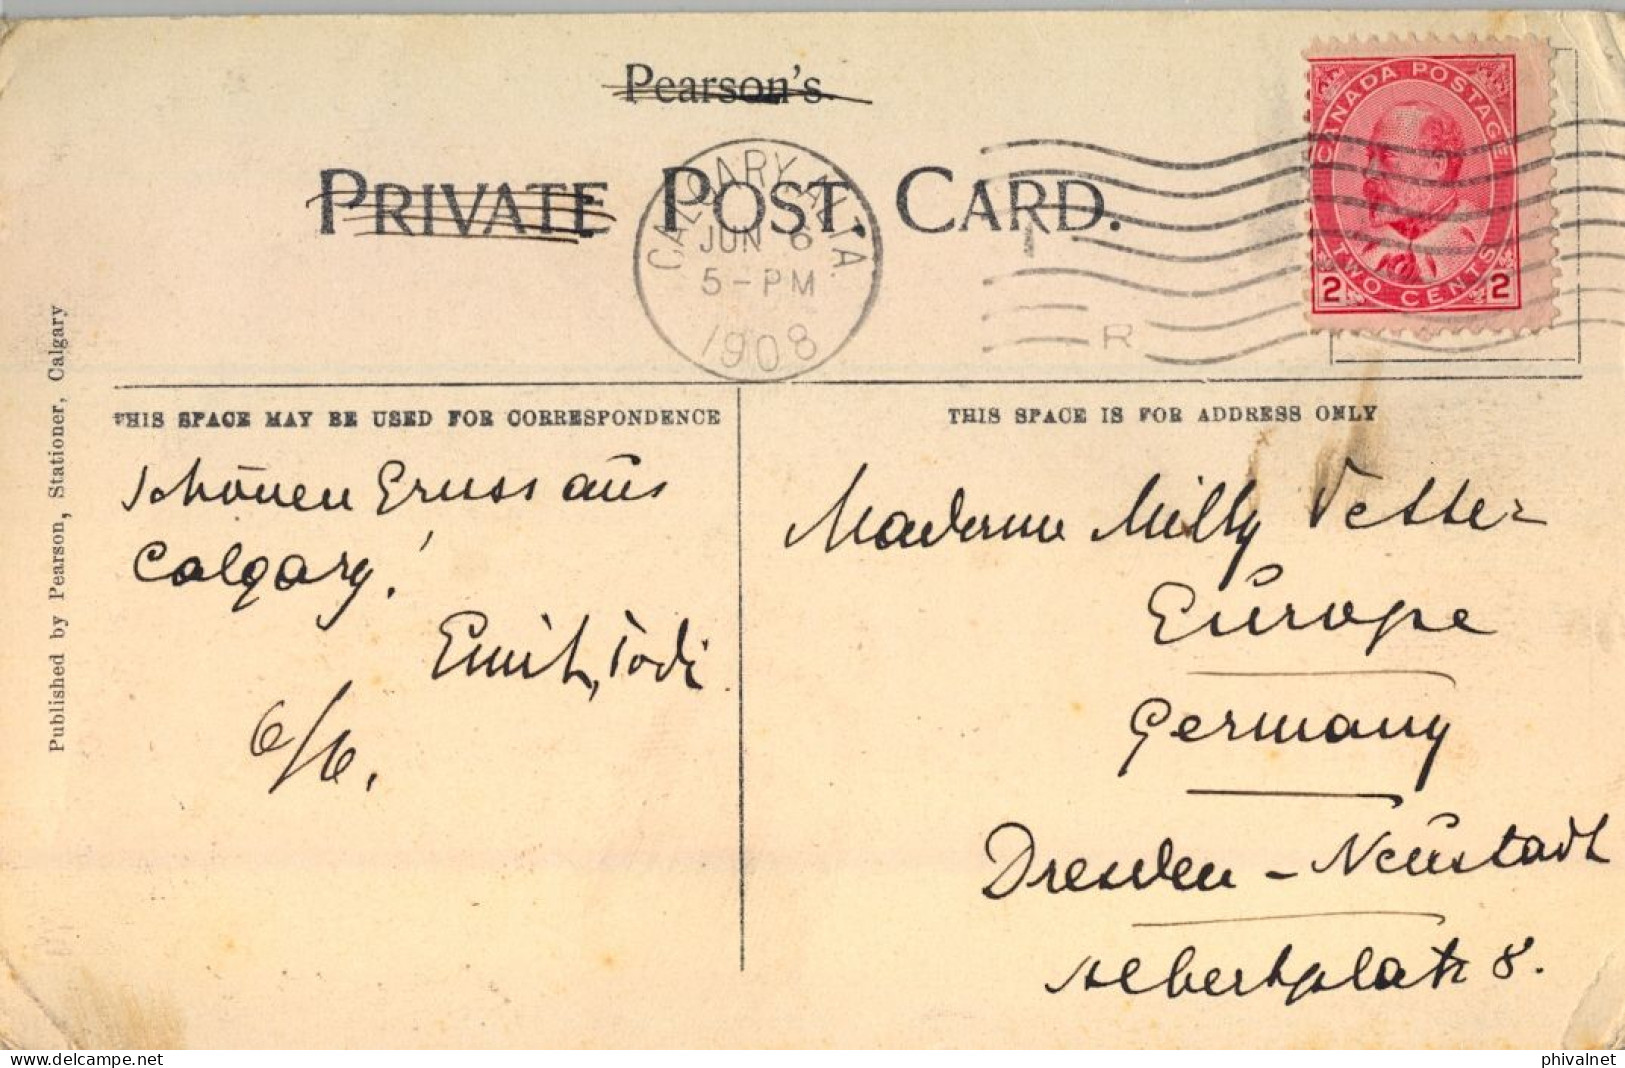 Pearson's
PRIVATE POST CARD.
CALGARY, ALTA.
JUN 6
5-PM
1908
R
CANADA POSTAGE
TWO CENTS
2 2
Published by Pearson, Stationer, Calgary
THIS SPACE MAY BE USED FOR CORRESPONDENCE
Schönen Gruss aus
Calgary!
Emil,
6/6.
THIS SPACE IS FOR ADDRESS ONLY
Madame Milly Vetter
Europe
Germany
Dresden - Neustadt
Albertplatz 8.
phivalnet
delcampe.net